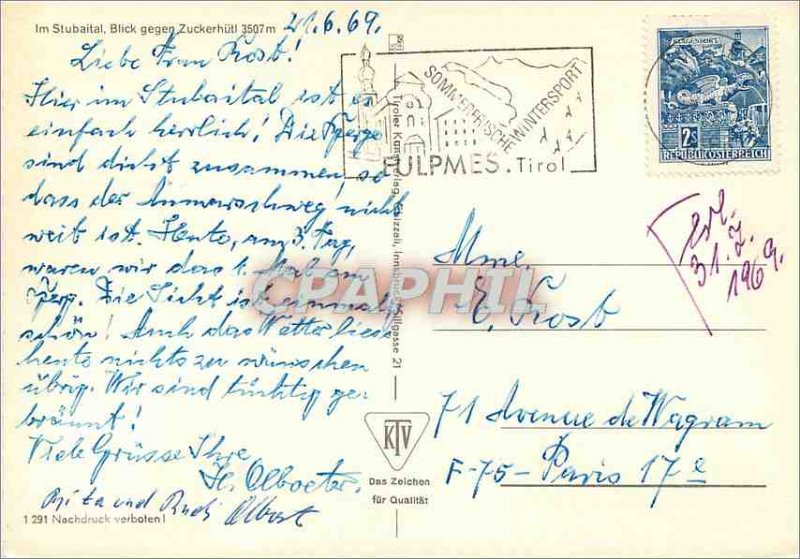 Im Stubaital, Blick gegen Zuckerhütl 3507m
21.6.69.
Liebe Frau Kost!
Hier im Stubaital ist es
einfach herrlich! Die Berge
sind dicht zusammen so
dass der Anmarschweg nicht
weit ist. Heute, am 3. Tag,
waren wir das 1. Mal am
Berg. Die Sicht ist einmalig
schön! Auch das Wetter liess
heute nichts zu wünschen
übrig. Wir sind tüchtig ge-
bräunt!
Viele Grüsse Ihre
und Rudi
1 291 Nachdruck verboten!
Tiroler Kunstverlag Chizzali, Innsbruck, Sillgasse 21
KTV
Das Zeichen
für Qualität
SOMMERFRISCHE
WINTERSPORT
FULPMES. Tirol
2S
REPUBLIK ÖSTERREICH
31.7.
1969.
Mme.
E. Kost
71 Avenue de Wagram
F-75- Paris 17e
CPARAPHIL